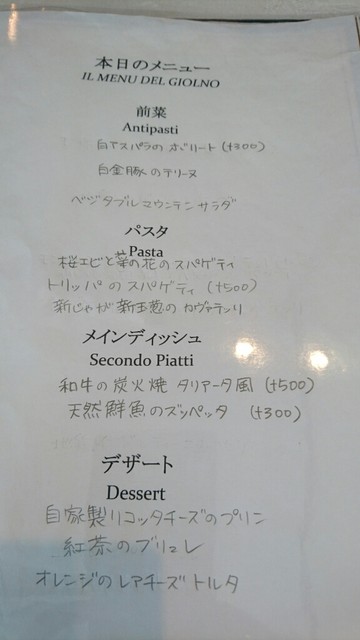 本日のメニュー
IL MENU DEL GIOLNO
前菜
Antipasti
白アスパラの ボリート (+300)
白金豚のテリーヌ
ベジタブルマウンテンサラダ
パスタ
Pasta
桜エビと菜の花のスパゲティ
トリッパのスパゲティ (+500)
新じゃが 新玉葱のカヴァテッリ
メインディッシュ
Secondo Piatti
和牛の炭火焼 タリアータ風 (+500)
天然鮮魚のズッペッタ (+300)
デザート
Dessert
自家製リコッタチーズのプリン
紅茶のブリュレ
オレンジのレアチーズトルタ